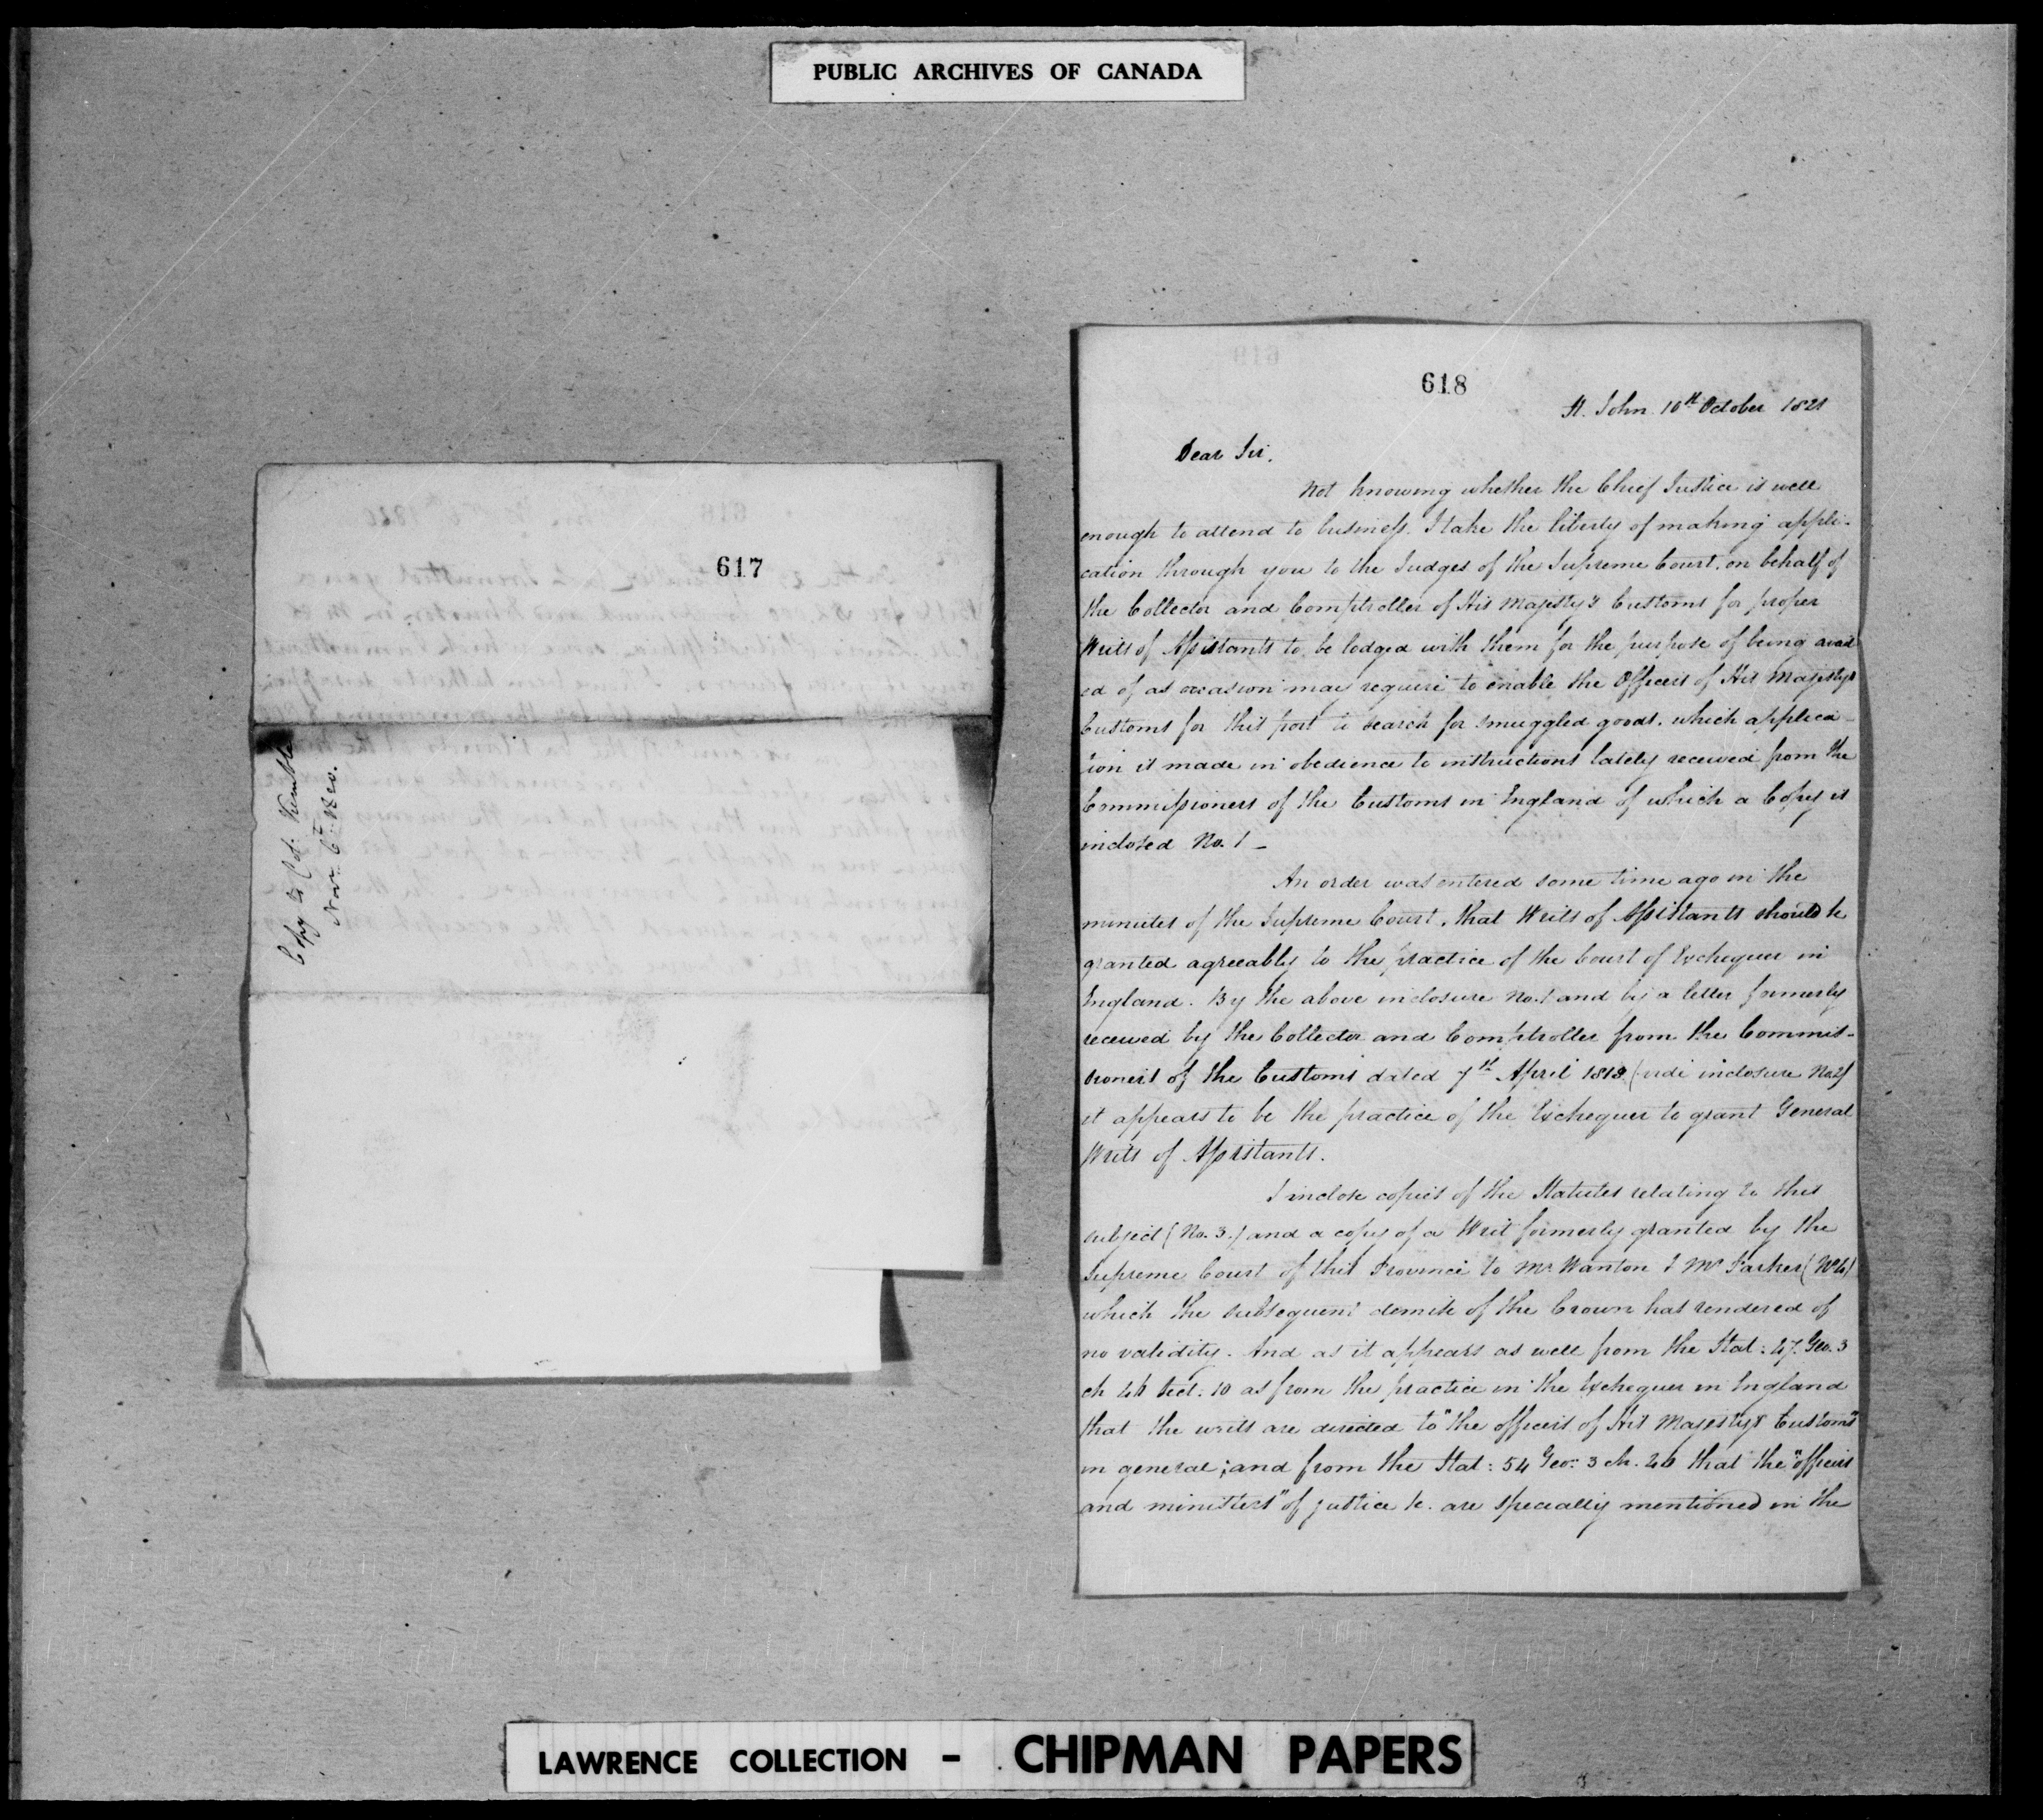 PUBLIC ARCHIVES OF CANADA
617
Copy to Col: Kemble
Novr. 6th 1820.
618
St. John 10th October 1821
Dear Sir,
Not knowing whether the Chief Justice is well
enough to attend to business. I take the liberty of making appli-
cation through you to the Judges of the Supreme Court, on behalf of
the Collector and Comptroller of His Majesty's Customs for proper
Writs of Assistants to be lodged with them for the purpose of being avail
ed of as occasion may require to enable the Officers of His Majestys
Customs for this port to search for smuggled goods, which applica-
tion is made in obedience to instructions lately received from the
Commissioners of the Customs in England of which a Copy is
inclosed No. 1 -
An order was entered some time ago in the
minutes of the Supreme Court, that Writs of Assistants should be
granted agreeably to the practice of the Court of Exchequer in
England. By the above inclosure No. 1 and by a letter formerly
received by the Collector and Comptroller from the Commis-
sioners of the Customs dated 7th April 1813 (vide inclosure No. 2)
it appears to be the practice of the Exchequer to grant General
Writs of Assistants.
I inclose copies of the Statutes relating to this
subject (No. 3.) and a copy of a Writ formerly granted by the
Supreme Court of this Province to Mr Wanton & Mr Parker (No 4)
which the subsequent demise of the Crown has rendered of
no validity. And as it appears as well from the Stat: 47. Geo. 3
ch Sect: 10 as from the practice in the Exchequer in England
that the writs are directed to "the officers of His Majestys Customs"
in general; and from the Stat: 54 Geo: 3 ch. that the "officers
and ministers" of justice &c. are specially mentioned in the
LAWRENCE COLLECTION - CHIPMAN PAPERS